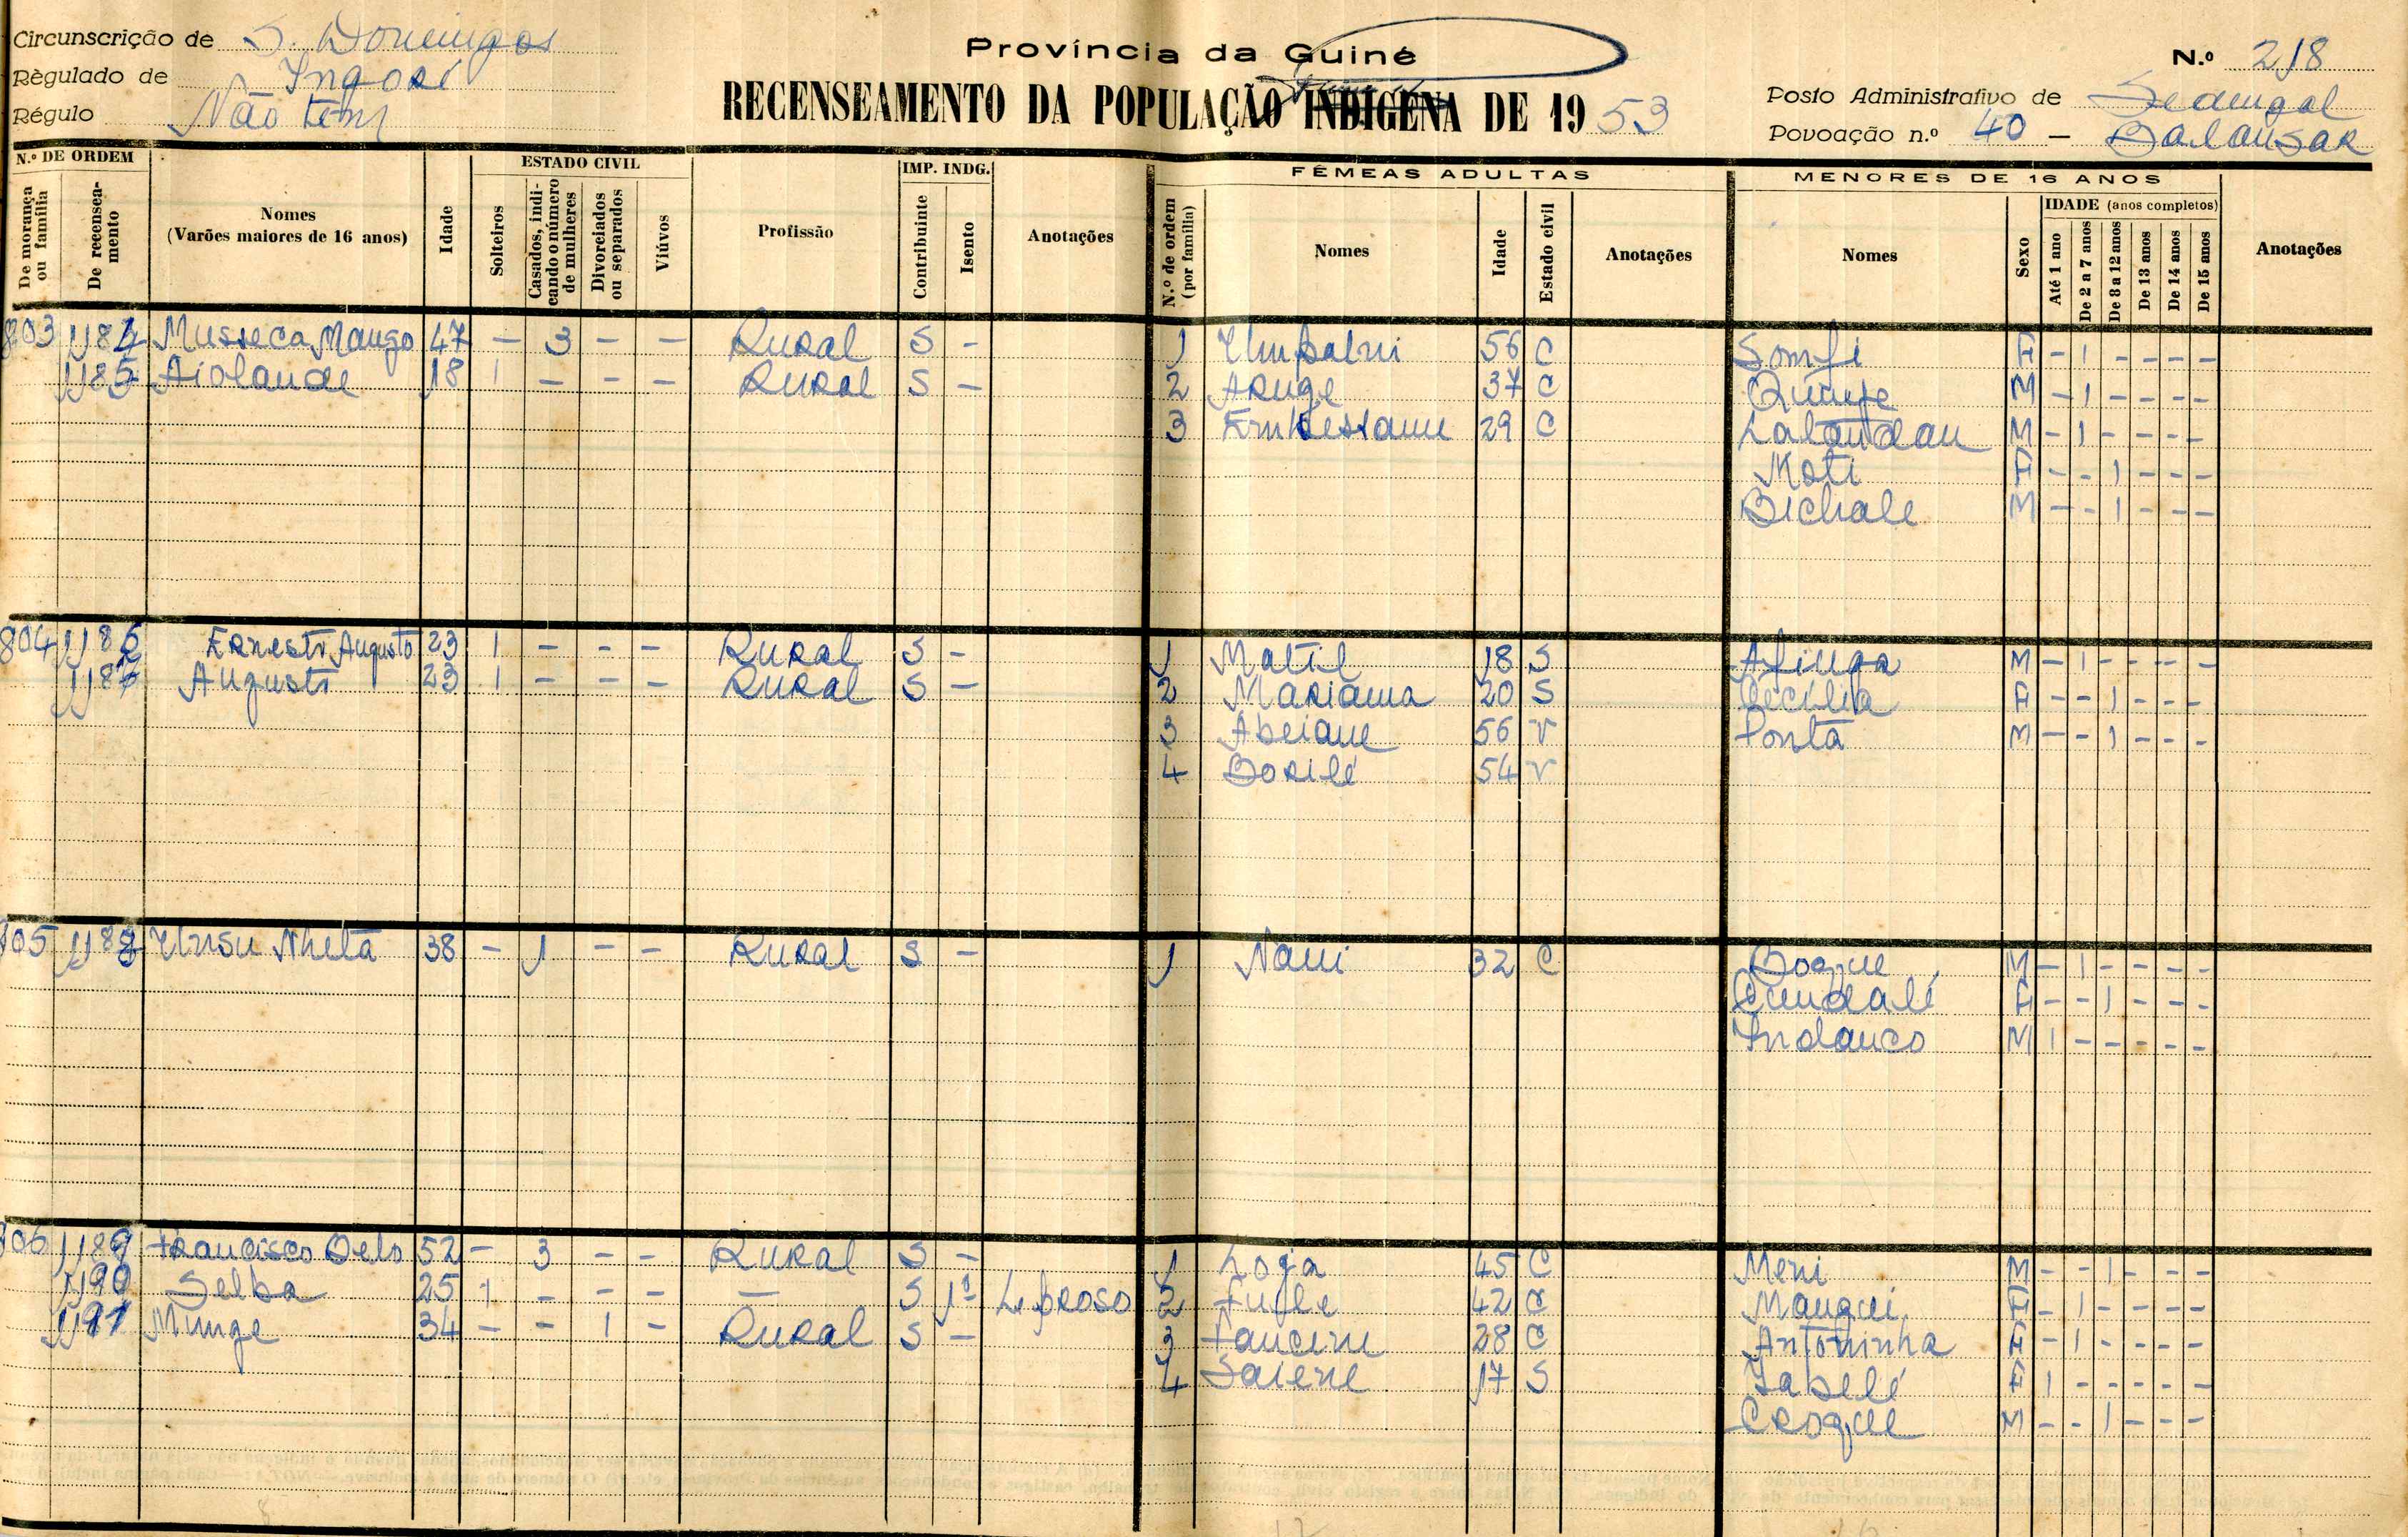 Circunscrição de S. Domingos
Règulado de Ingoré
Régulo Não tem
Província da Guiné
RECENSEAMENTO DA POPULAÇÃO INDIGENA DE 1953
N.º 218
Posto Administrativo de
Povoação n.º 40 –
N.º DE ORDEM
De morança ou família
De recenseamento
Nomes (Varões maiores de 16 anos)
Idade
ESTADO CIVIL
Solteiros
Casados, indicando o número de mulheres
Divorciados ou separados
Viúvos
Profissão
IMP. INDG.
Contribuinte
Isento
Anotações
FÉMEAS ADULTAS
N.º de ordem (por família)
Nomes
Idade
Estado civil
Anotações
MENORES DE 16 ANOS
Nomes
Sexo
IDADE (anos completos)
Até 1 ano
De 2 a 7 anos
De 8 a 12 anos
De 13 anos
De 14 anos
De 15 anos
Anotações
803 1184 Musseca Mango 47 – 3 – – Rural S – 1 56 C Somfi F – 1 – – – –
1185 Aiolande 18 1 – – – Rural S – 2 Aruge 37 C M – 1 – – – –
3 29 C Lalandan M – 1 – – – –
Moti F – – 1 – – –
Bichale M – – 1 – – –
804 1186 Ernesto Augusto 23 1 – – – Rural S – 1 Matil 18 S Afinga M – 1 – – – –
1187 Augusto 23 1 – – – Rural S – 2 Mariama 20 S Cecília F – – 1 – – –
3 Abeiane 56 V Ponta M – – 1 – – –
4 Borilé 54 V
805 1188 Nheta 38 – 1 – – Rural S – 1 Nani 32 C Boque M – 1 – – – –
Cundalé F – – 1 – – –
Indanco M 1 – – – – –
806 1189 Francisco 52 – 3 – – Rural S – 1 Loja 45 C Meni M – – 1 – – –
1190 Selba 25 1 – – – – S 1 Leproso 2 42 C Mangui F – 1 – – – –
1191 Munge 34 – – 1 – Rural S – 3 28 C Antoninha F – 1 – – – –
4 Saiene 17 S Jabelé F 1 – – – – –
Croque M – – 1 – – –